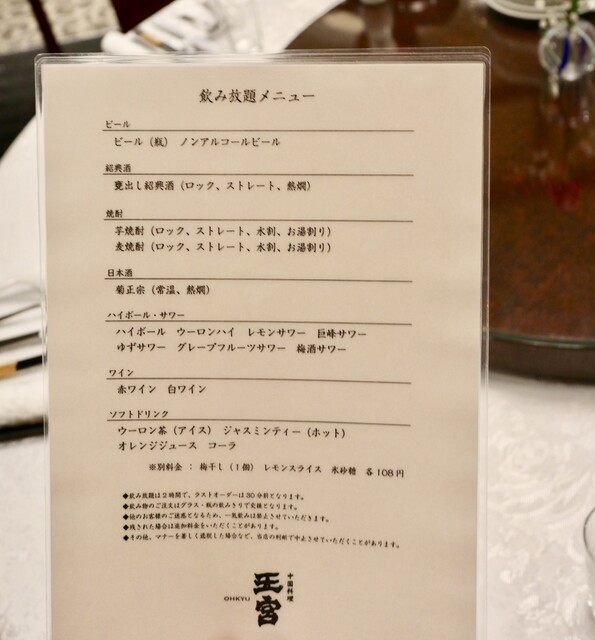 飲み放題メニュー
ビール
ビール（瓶） ノンアルコールビール
紹興酒
甕出し紹興酒（ロック、ストレート、熱燗）
焼酎
芋焼酎（ロック、ストレート、水割、お湯割り）
麦焼酎（ロック、ストレート、水割、お湯割り）
日本酒
菊正宗（常温、熱燗）
ハイボール・サワー
ハイボール ウーロンハイ レモンサワー 巨峰サワー
ゆずサワー グレープフルーツサワー 梅酒サワー
ワイン
赤ワイン 白ワイン
ソフトドリンク
ウーロン茶（アイス） ジャスミンティー（ホット）
オレンジジュース コーラ
※別料金 ： 梅干し（1個） レモンスライス 氷砂糖 各108円
◆飲み放題は2時間で、ラストオーダーは30分前となります。
◆飲み物のご注文はグラス・瓶の飲みきりで交換となります。
◆他のお客様のご迷惑となるため、一気飲みは禁止させていただきます。
◆残された場合は追加料金をいただくことがあります。
◆その他、マナーを著しく逸脱した場合など、当店の判断で中止させていただくことがあります。
中国料理
王宮
OHKYU